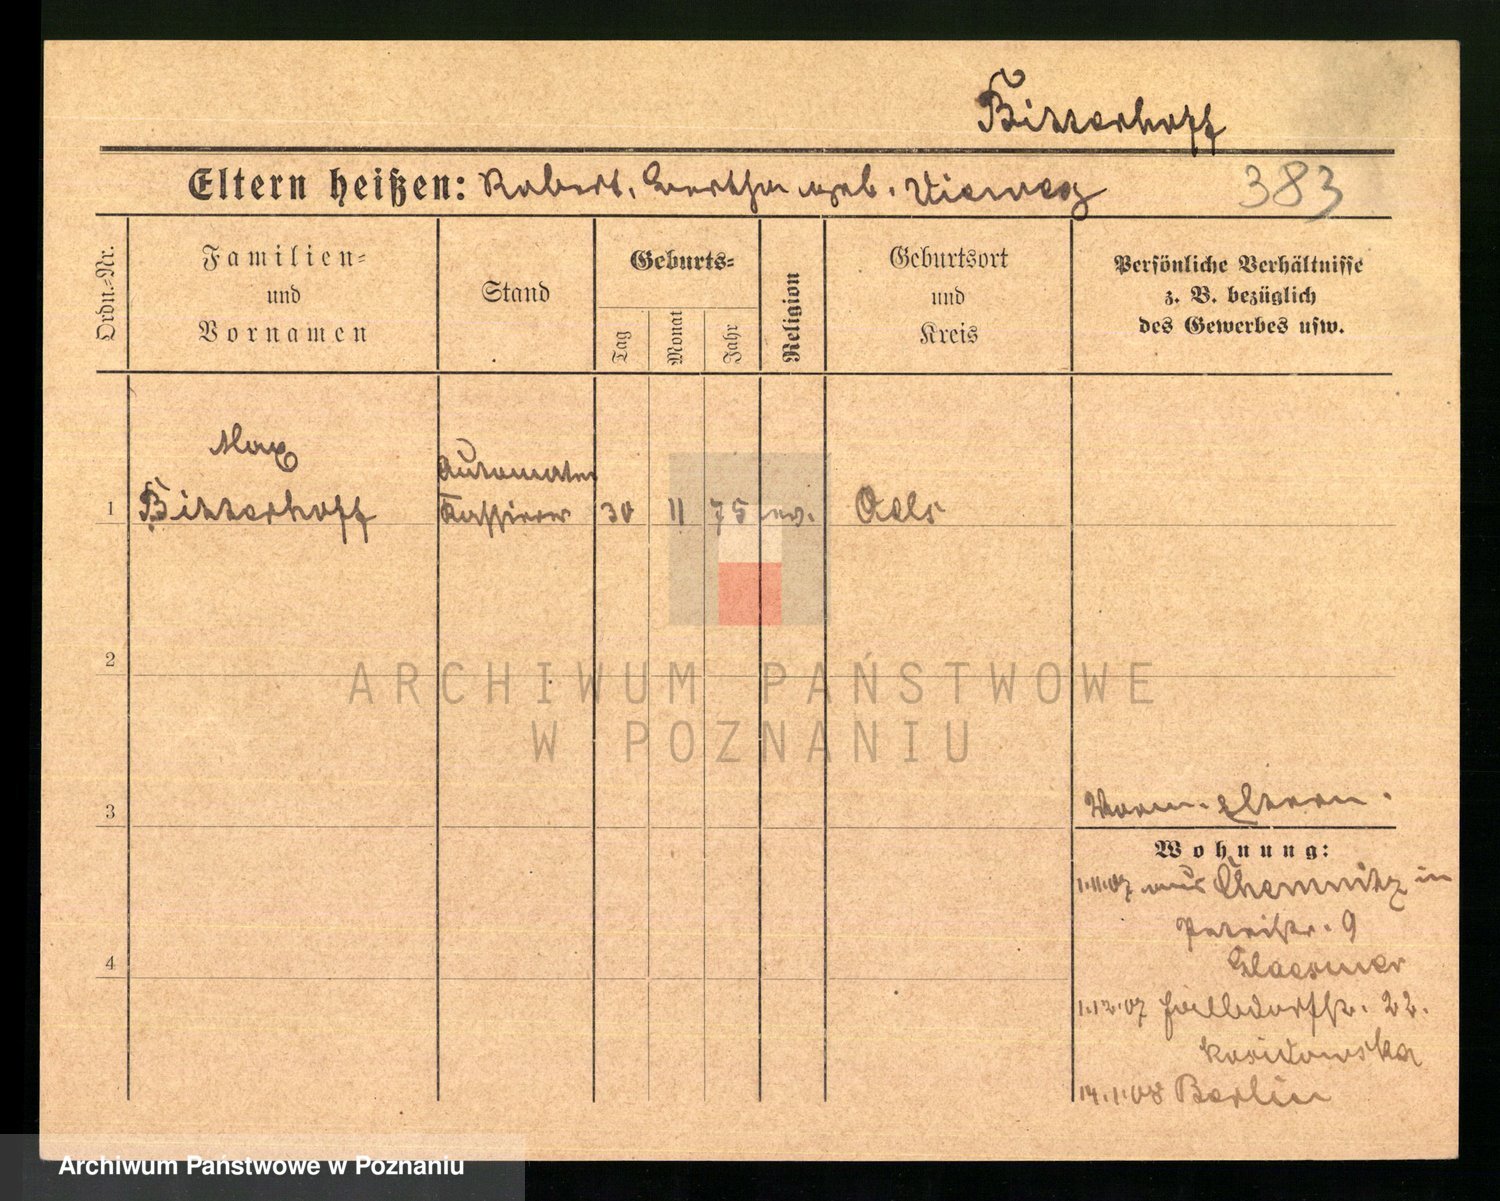 Bitterhoff
Eltern heißen: Robert, Bertha geb. Vieweg
383
Ordn.-Nr.
Familien-
und
Vornamen
Stand
Geburts-
Tag
Monat
Jahr
Religion
Geburtsort
und
Kreis
Persönliche Verhältnisse
z. B. bezüglich
des Gewerbes usw.
Max
Automaten
1 Bitterhoff Kassierer 30 11 75 ev. Oels
2
ARCHIWUM PAŃSTWOWE
W POZNANIU
3
Eltern.
Wohnung:
1.11.07 aus Chemnitz in
Petristr. 9
4
Glaesmer
1.12.07 22.
14.1.08 Berlin
Archiwum Państwowe w Poznaniu